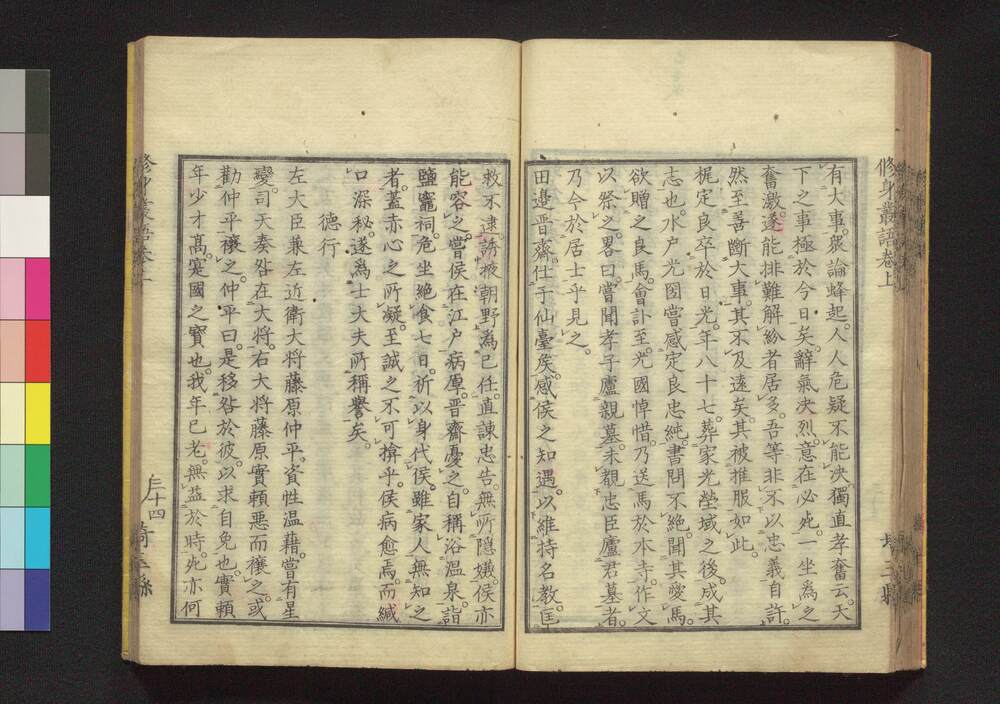 修身叢語卷上
有大事。衆論蜂起。人人危疑不能決獨直孝奮云。天
下之事極於今日矣。辭氣決烈。意在必死。一坐為之
奮激。遂能排難解紛者居多。吾等非不以忠義自許。
然至善斷大事。其不及遠矣。其被推服如此。
梶定良卒於日光。年八十七。葬家光塋域之後。成其
志也。水戶光圀嘗感定良忠純。書問不絕。聞其愛馬。
欲贈之良馬。會訃至。光國悼惜。乃送馬於本寺。作文
以祭之。畧曰。嘗聞孝子廬親墓。未覩忠臣廬君墓者。
乃今於居士乎見之。
田邉晋齋。仕于仙臺矦。感侯之知遇。以維持名教。匡
救不逮。誘掖朝野。為己任。直諫忠告。無所隱嫌。侯亦
能容之。嘗侯在江户病㢈。晋齋憂之。自稱浴温泉。詣
鹽竈祠。危坐絶食七日。祈以身代侯。雖家人無知之
者。蓋赤心之所凝。至誠之不可揜乎。侯病愈焉。而緘
口深秘。遂為士大夫所稱譽矣。
德行
左大臣兼左近衛大将藤原仲平。資性温藉。嘗有星
變。司天奏咎在大将。右大将藤原實頼惡而禳之。或
勸仲平禳之。仲平曰。是移咎於彼。以求自免也。實頼
年少才髙。寔國之寶也。我年已老。無益於時。死亦何
三十四